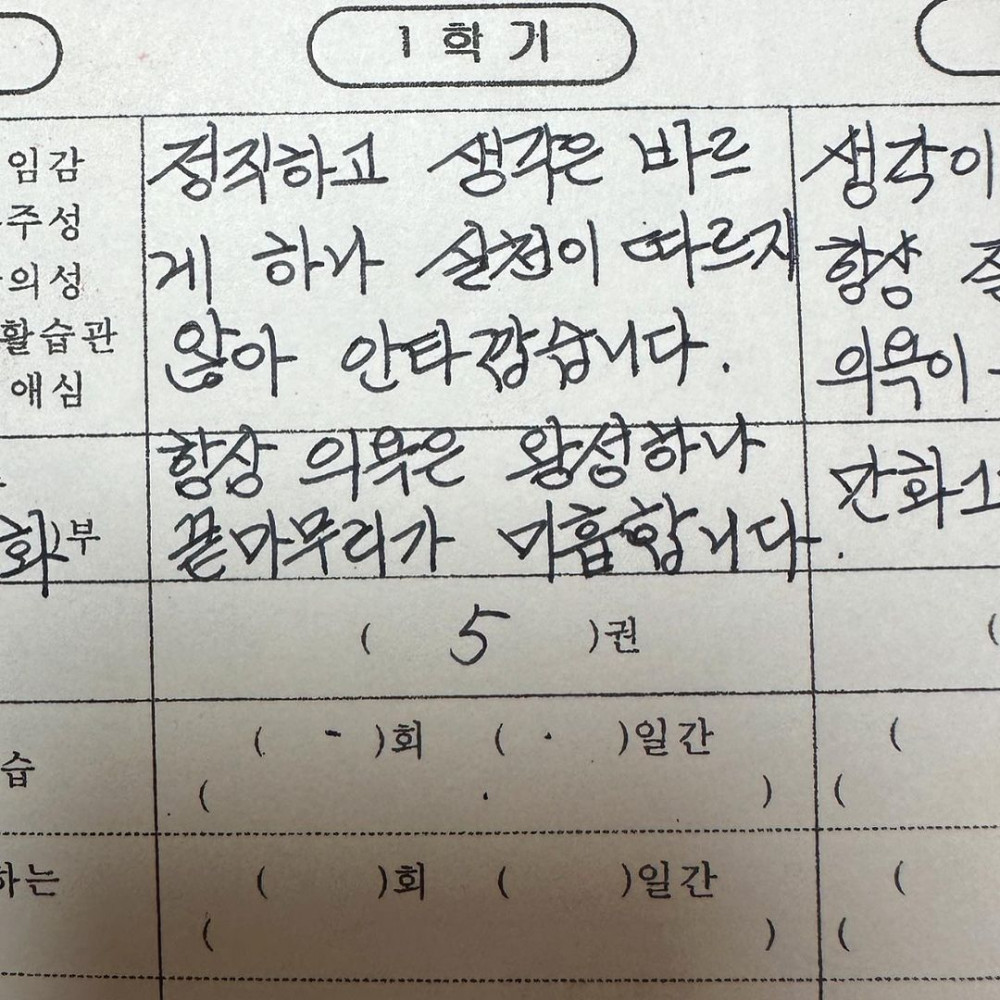 1 학 기
임감 정직하고 생각은 바르 생각이
주성
의성 게 하나 실천이 따르지 항상
활습관 않아 안타깝습니다. 의욕이
애심
항상 의욕은 왕성하나 만화
화 부 끝마무리가 미흡합니다.
( 5 )권 (
습 ( - )회 ( · )일간 (
( · ) (
하는 ( )회 ( )일간 (
( ) (